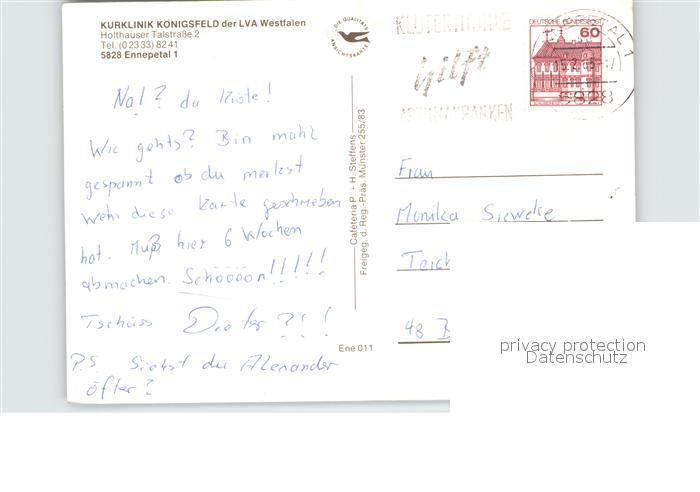 KURKLINIK KÖNIGSFELD der LVA Westfalen
Holthauser Talstraße 2
Tel. (0 23 33) 82 41
5828 Ennepetal 1
DIE QUALITÄTS
ANSICHTSKARTE
KLUTERTHÖHLE
hilft
ASTHMAKRANKEN
DEUTSCHE BUNDESPOST
60
ENNEPETAL 1
5828
Na!? du Kiste!
Wie gehts? Bin mahl
gespannt ob du merkst
wehr diese Karte geschrieben
hat. Muß hier 6 Wochen
abmachen. Schööön!!!!!
Tschüss Dieter?!!
P.S. Siehst du Alexander
öfter?
Cafeteria P. + H. Steffens
Freigeg. d. Reg.-Präs. Münster 255/83
Ene 011
Frau
Monika Sieweke
Teich
48 B
privacy protection
Datenschutz